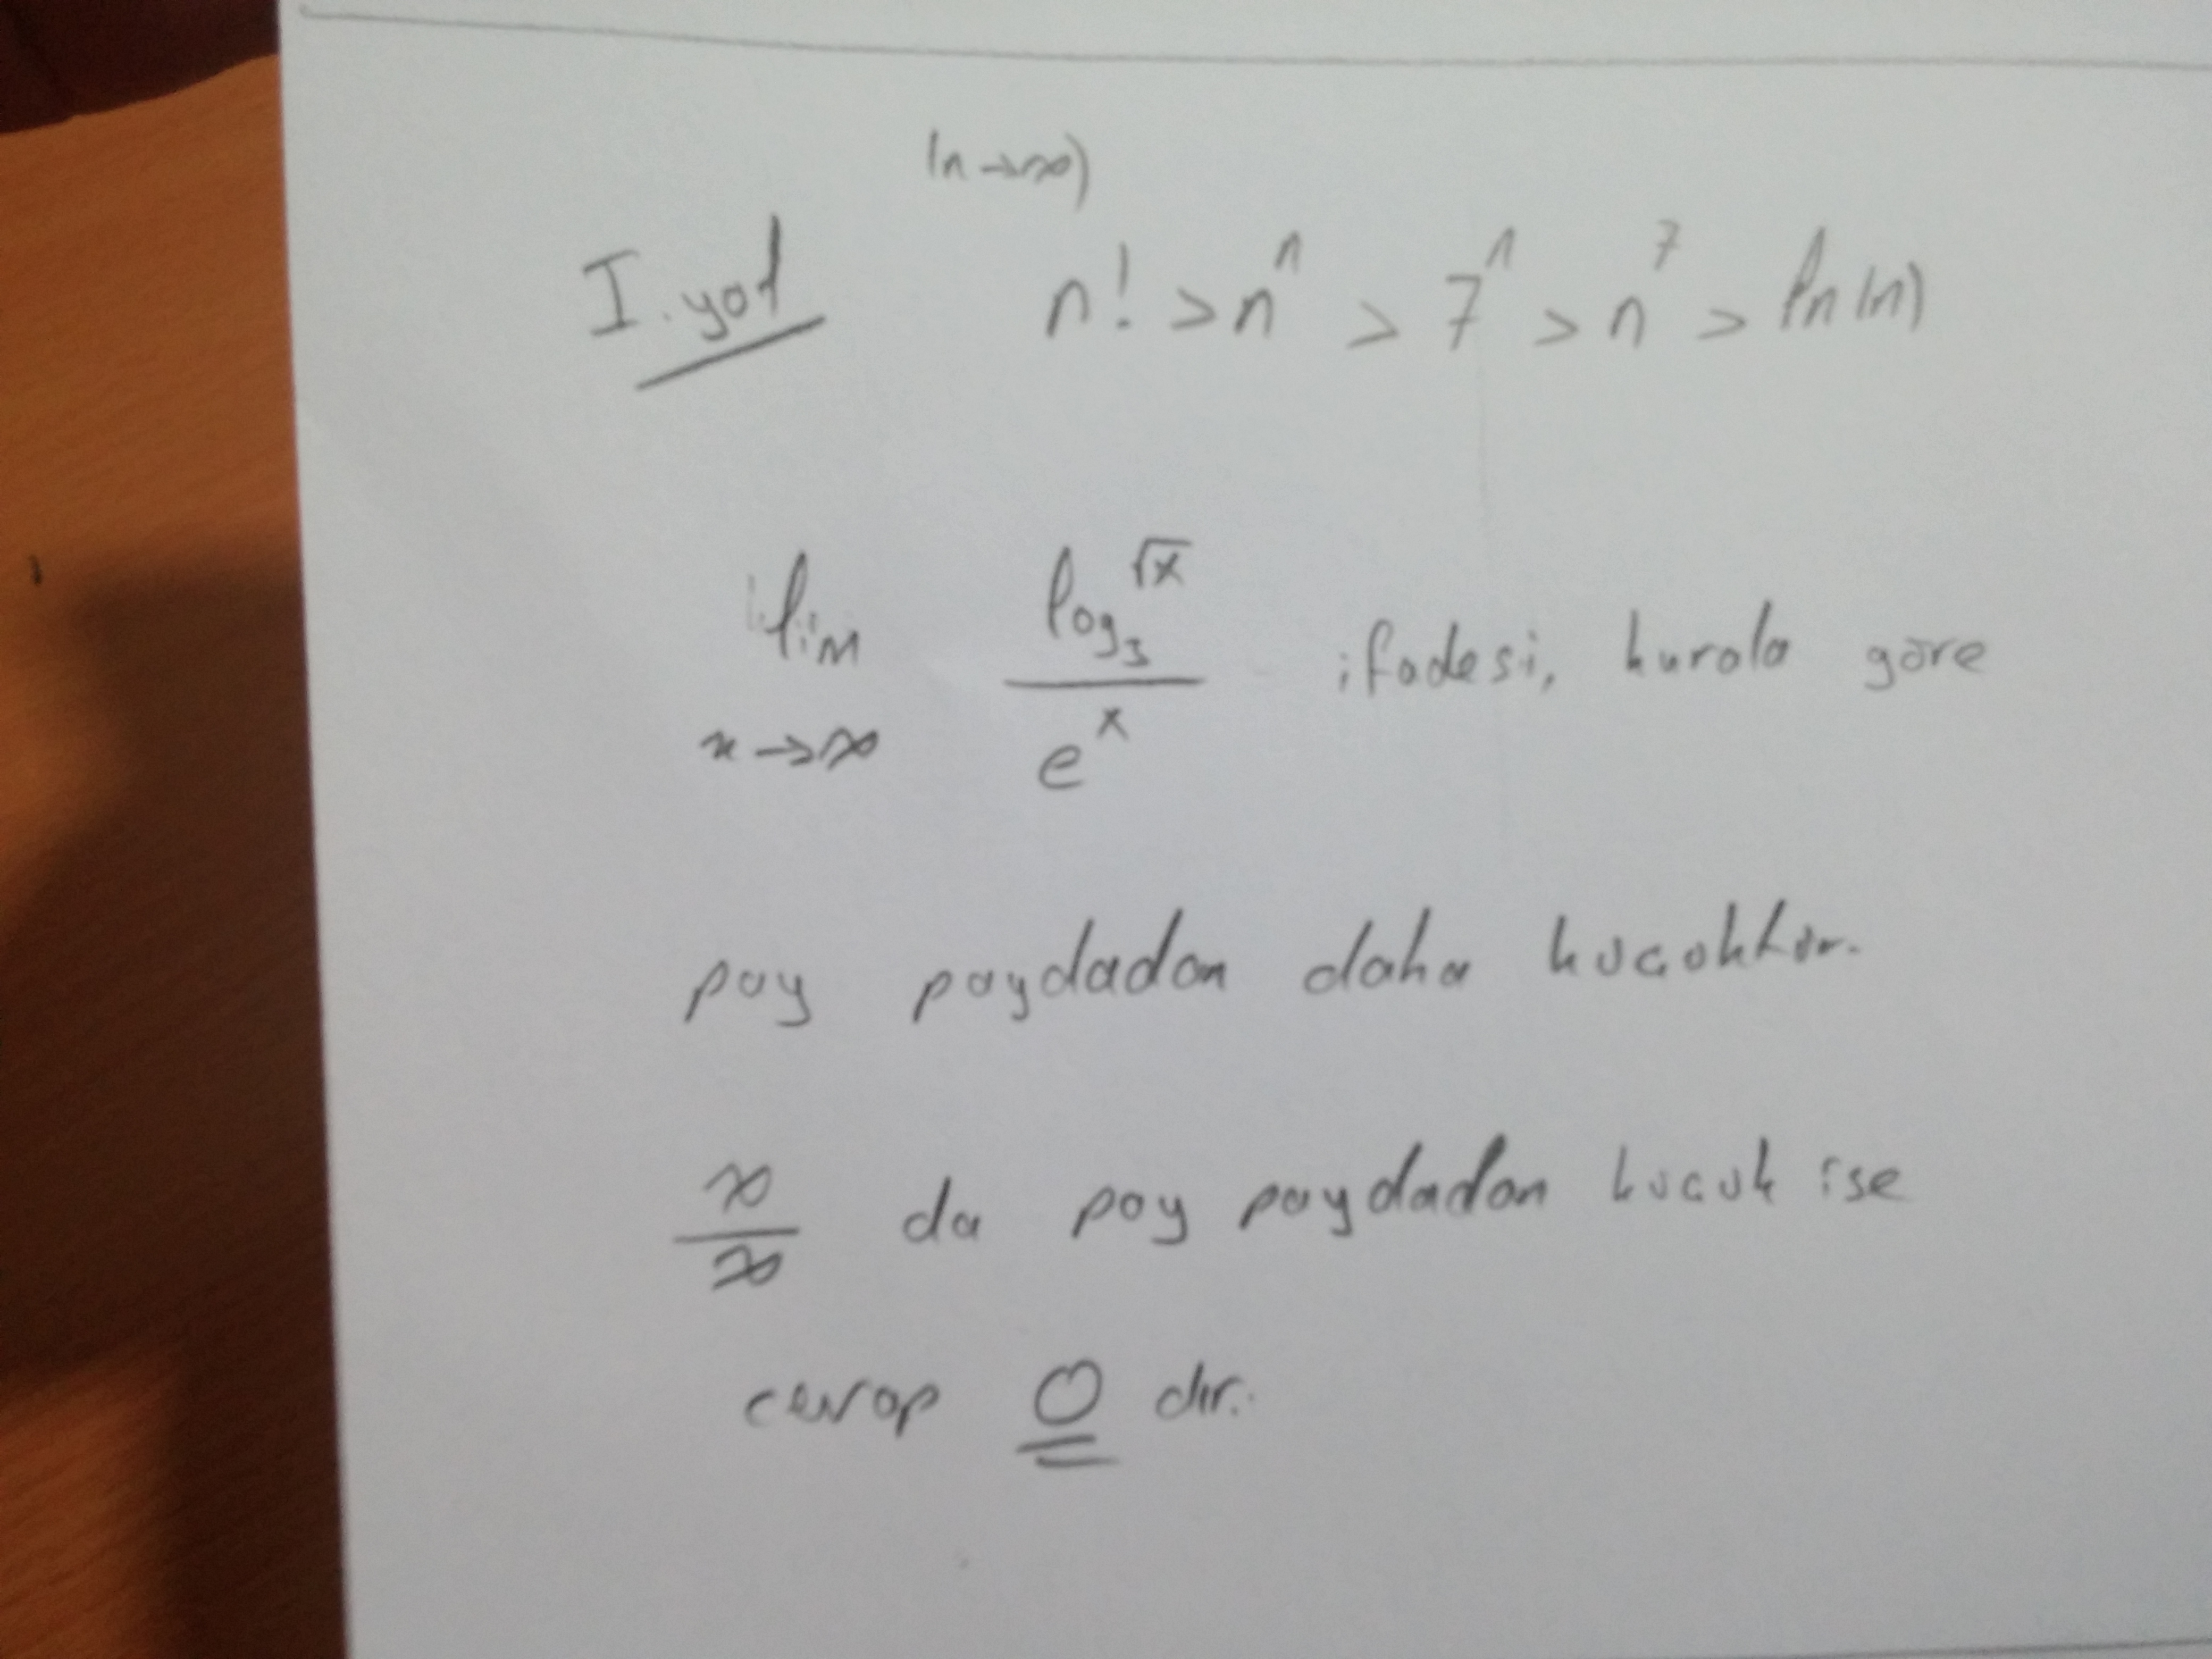 (n→∞)
I. yol n! > nⁿ > 7ⁿ > n⁷ > ln(n)
lim log₃√x ifadesi, kurala göre
x→∞ eˣ
pay paydadan daha kucuktur.
∞/∞ da pay paydadan kucuk ise
cevap 0 dır.